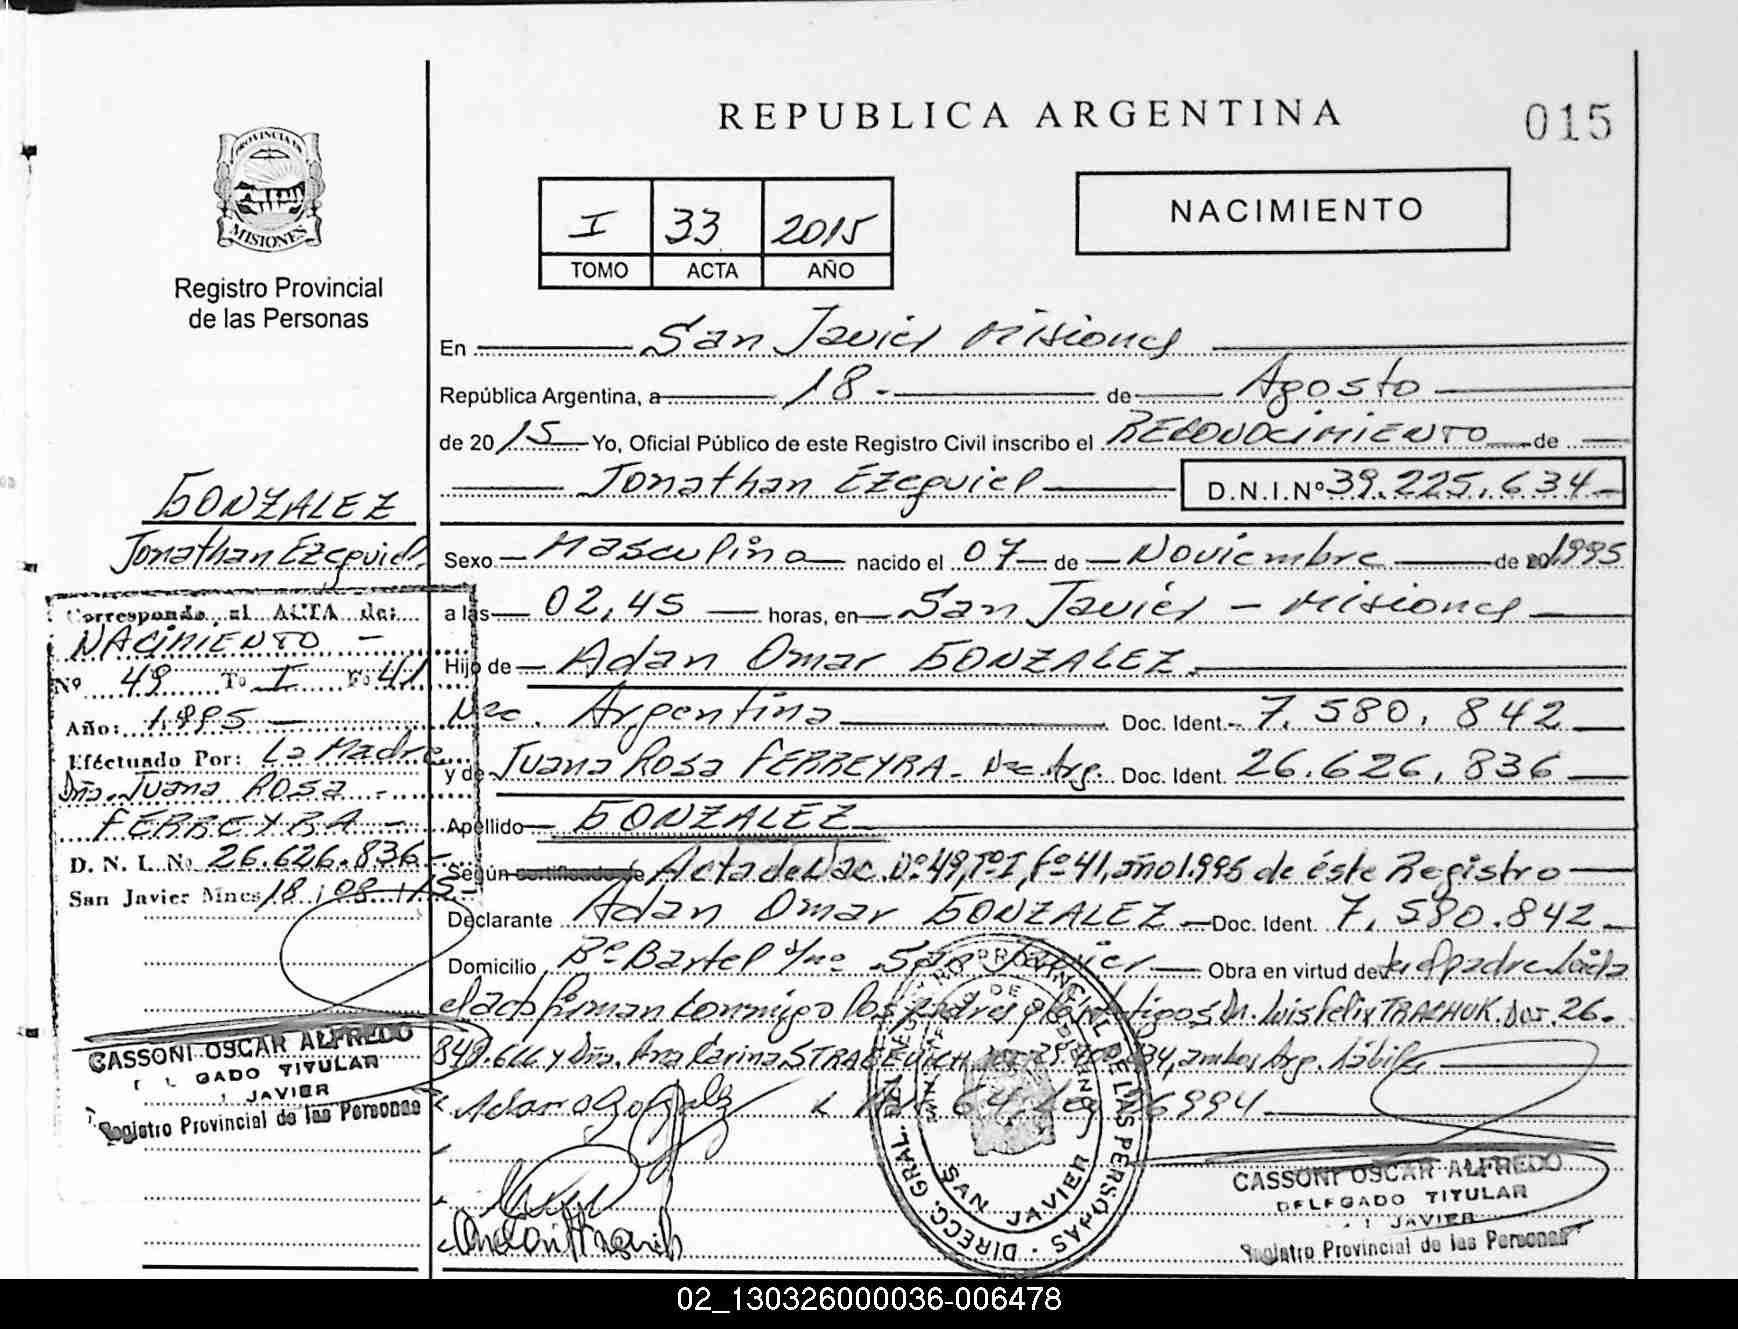 REPUBLICA ARGENTINA
015
PROVINCIA DE
MISIONES
Registro Provincial
de las Personas
I 33 2015
TOMO ACTA AÑO
NACIMIENTO
En San Javier Misiones
República Argentina, a 18 - de Agosto
de 2015 Yo, Oficial Público de este Registro Civil inscribo el RECONOCIMIENTO de
Jonathan Ezequiel D.N.I.Nº 39.225.634
Sexo Masculino nacido el 07 de Noviembre de 1995
a las 02,45 horas, en San Javier - Misiones
Hijo de Adan Omar GONZALEZ
Nac. Argentina Doc. Ident. 7.580.842
y de Juana Rosa FERREYRA - Nac Arg. Doc. Ident. 26.626.836
Apellido GONZALEZ
Según certificado de Acta de Nac. Nº 49, Tº I, Fº 41, año 1.995 de éste Registro
Declarante Adan Omar GONZALEZ Doc. Ident. 7.580.842
Domicilio Bº Bartel s/nº San Javier Obra en virtud de ser el padre Leída
el acta firman conmigo los padres y los testigos Dn. Luis Felix TRACHUK. DNI. 26.
849.6 y Dña. Ana Carina STRACEVICH ambos Arg. hábiles
GONZALEZ
Jonathan Ezequiel
Corresponde al ACTA de:
NACIMIENTO -
Nº 49 Tº I Fº 41
Año: 1.995
Efectuado Por: La Madre
Dña. Juana Rosa -
FERREYRA -
D. N. I. Nº 26.626.836
San Javier Mnes 18 / 08 / 15
CASSONI OSCAR ALFREDO
GADO TITULAR
JAVIER
Registro Provincial de las Personas
DIRECC. GRAL. REGISTRO PROVINCIAL DE LAS PERSONAS
SAN JAVIER
CASSONI OSCAR ALFREDO
DELEGADO TITULAR
JAVIER
Registro Provincial de las Personas
02_130326000036-006478